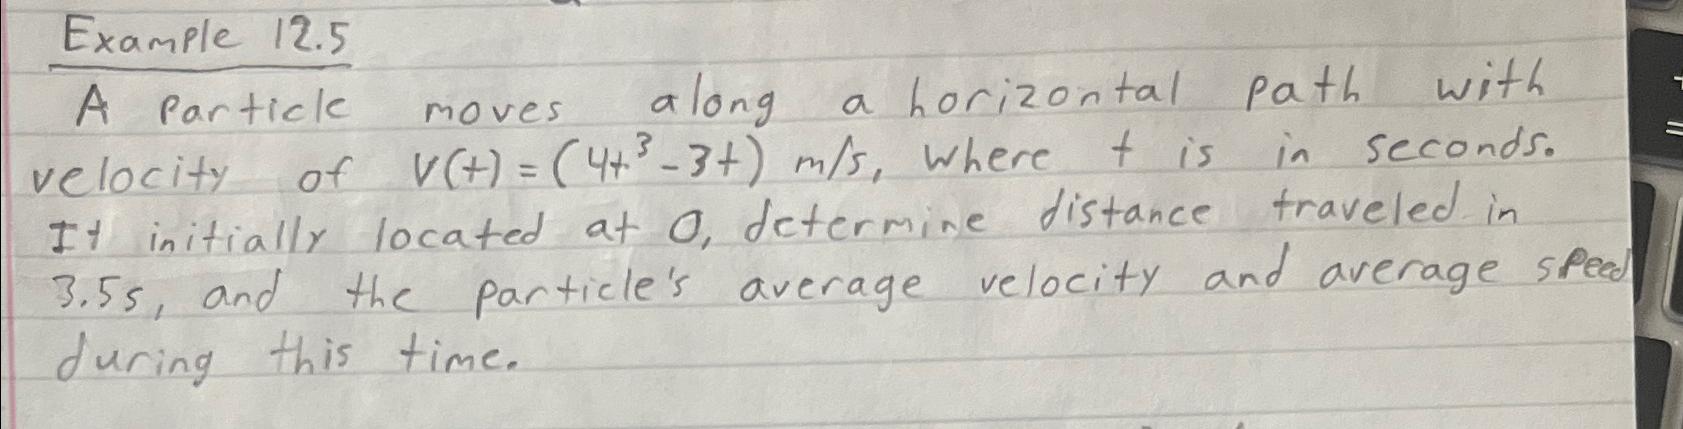 Example 12.5
A Particle moves along a horizontal path with
velocity of V(t) = (4t³ - 3t) m/s, where t is in seconds.
It initially located at O, determine distance traveled in
3.5s, and the particle's average velocity and average speed
during this time.